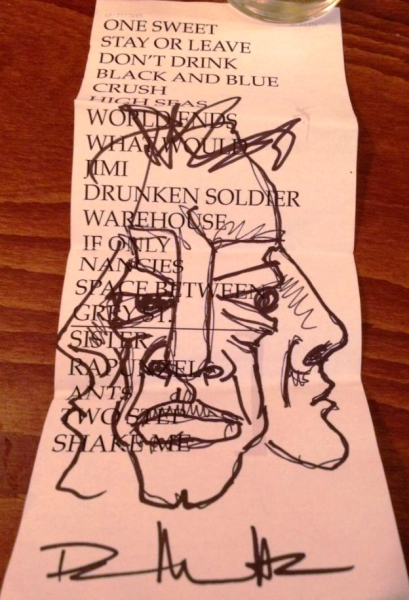 ONE SWEET
STAY OR LEAVE
DON'T DRINK
BLACK AND BLUE
CRUSH
HIGH SEAS
WORLD ENDS
WHAT WOULD
JIMI
DRUNKEN SOLDIER
WAREHOUSE
IF ONLY
NANCIES
SPACE BETWEEN
GREY ST
SISTER
RAPUNZEL
ANTS
TWO STEP
SHAKE ME